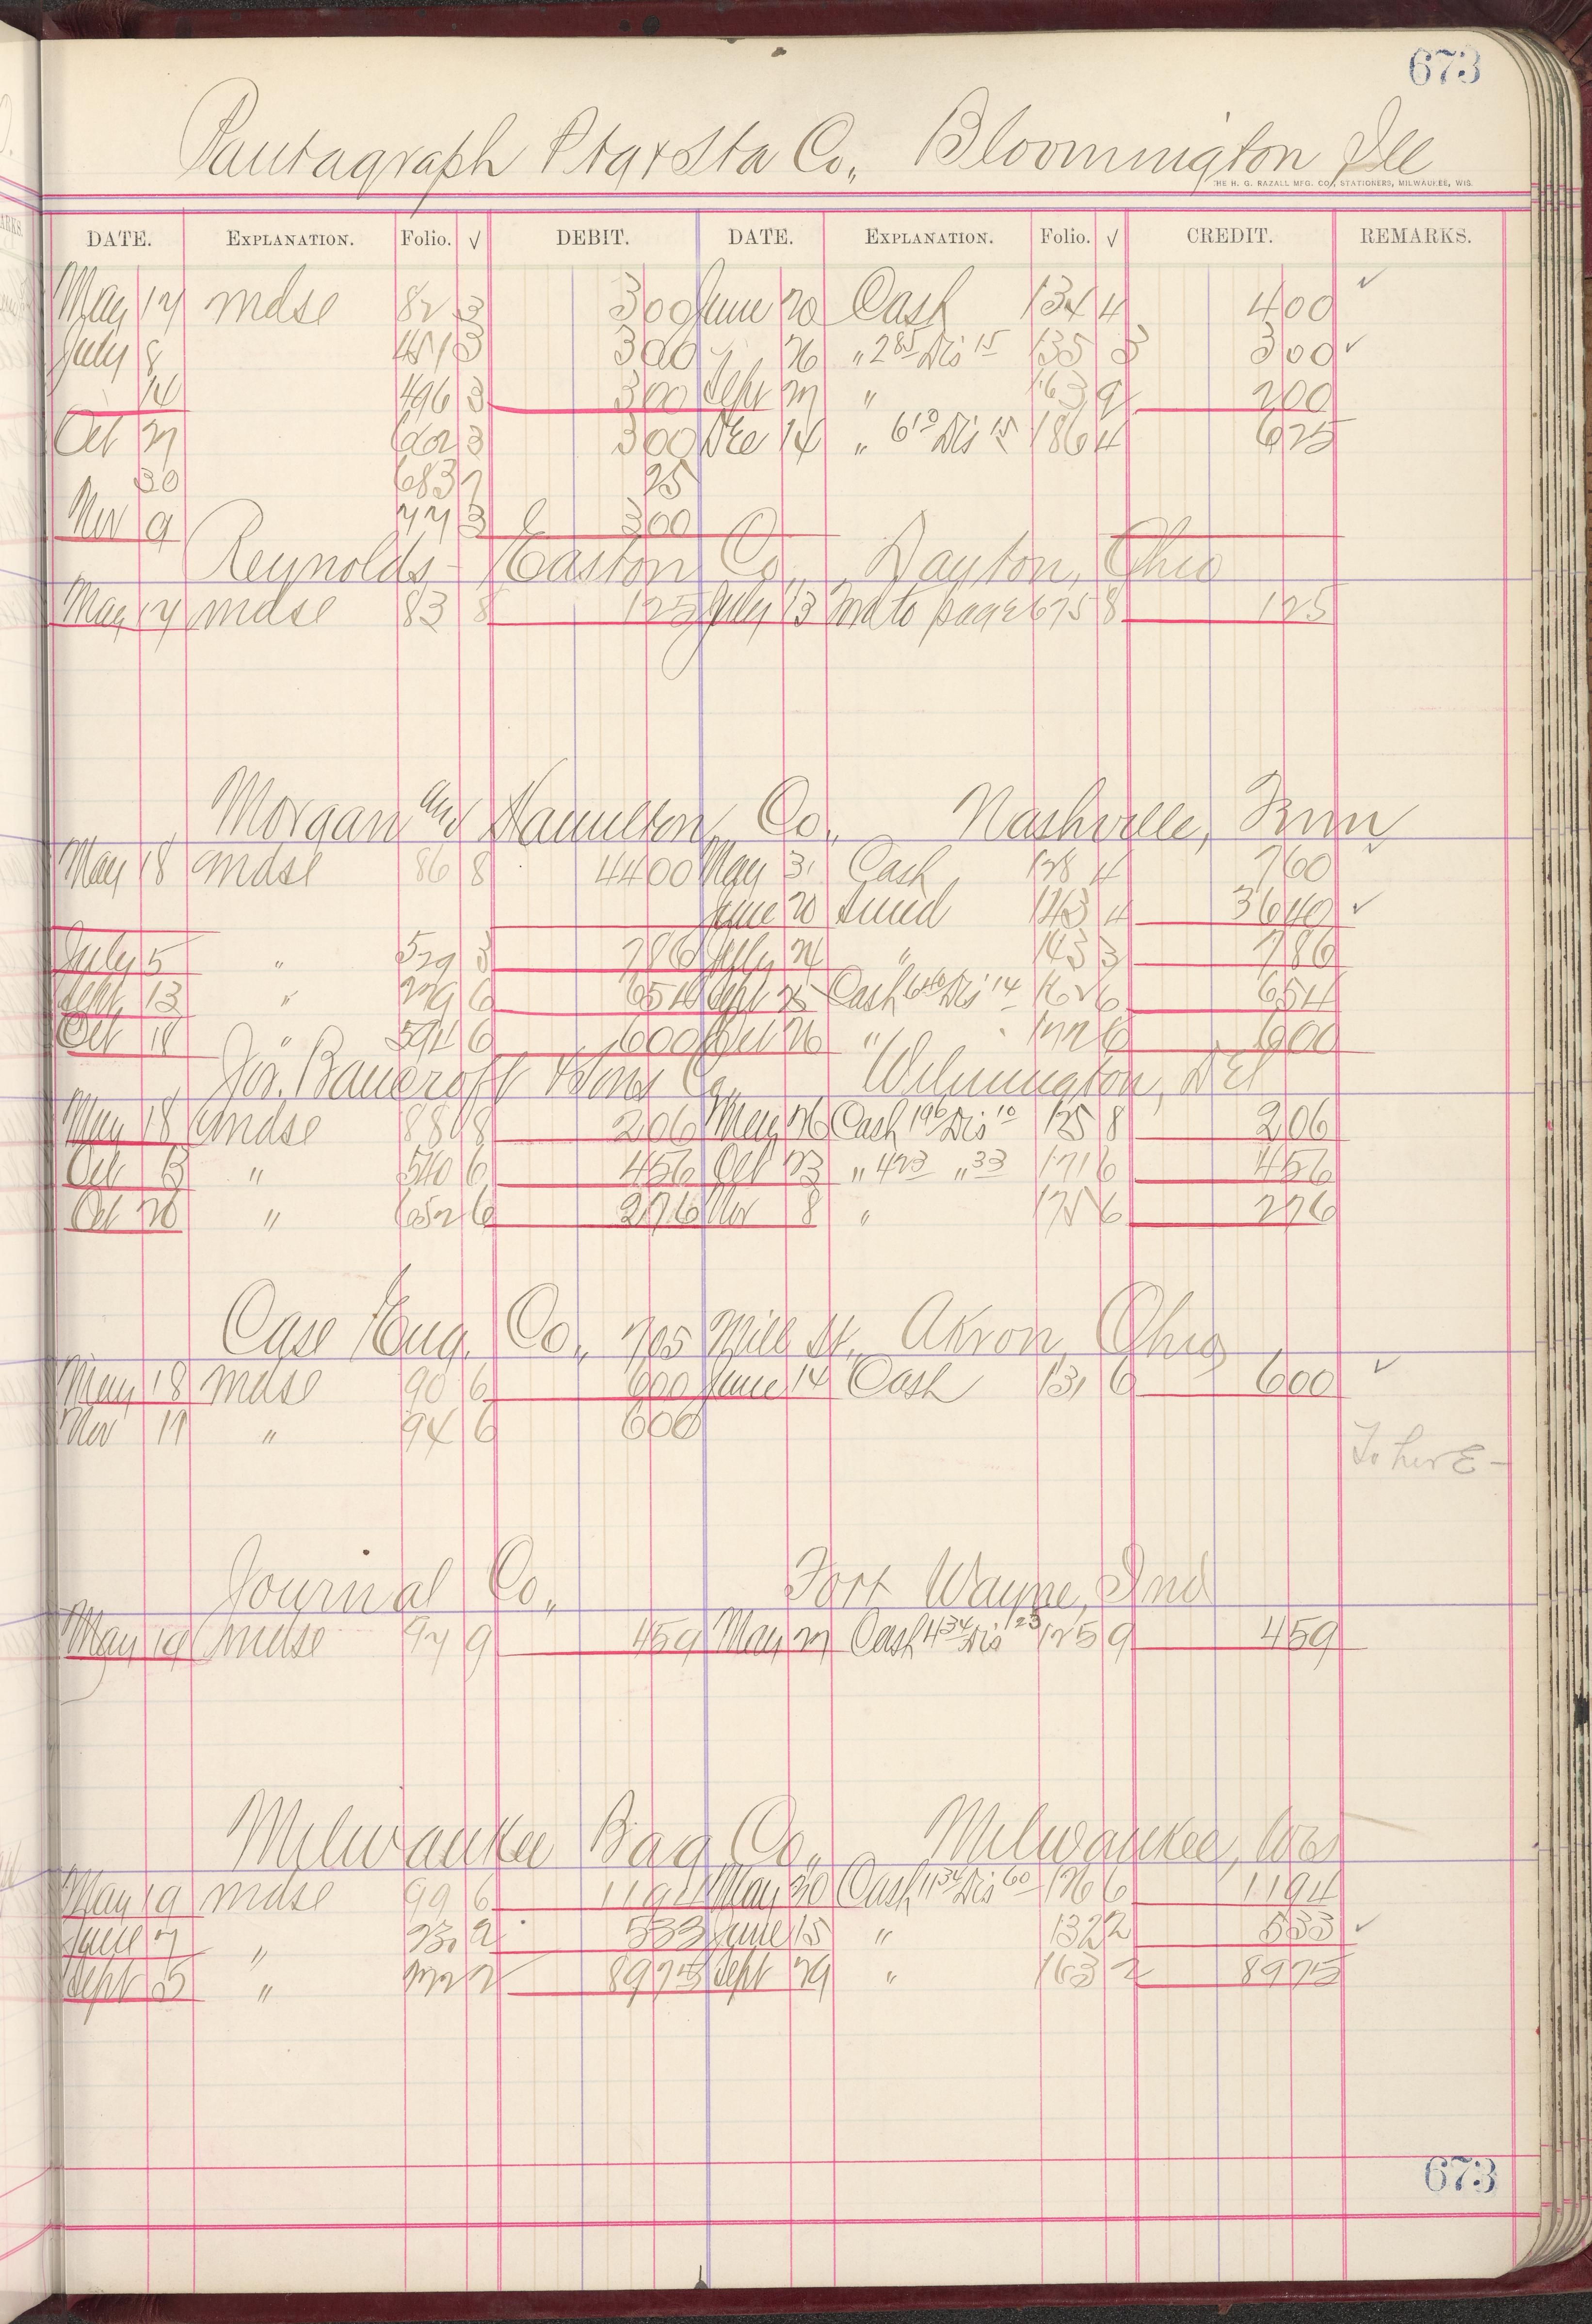 673
Pantagraph Ptg & Sta Co., Bloomington Ill
THE H. G. RAZALL MFG. CO., STATIONERS, MILWAUKEE, WIS.
DATE. EXPLANATION. Folio. √ DEBIT. DATE. EXPLANATION. Folio. √ CREDIT. REMARKS.
May 17 mdse 82 3 300 June 20 Cash 134 4 400 ✓
July 8 451 3 300 " 26 " 285 Dis 15 135 3 300 ✓
14 496 3 300 Sept 27 " 163 9 200
Oct 21 602 3 300 Dec 14 " 610 Dis 15 186 4 625
30 683 7 25
Nov 9 77 3 300
Reynolds - Easton Co., Dayton, Ohio
May 17 mdse 83 8 125 July 13 page 675 8 125
Morgan and Hamilton Co., Nashville, Tenn
May 18 mdse 86 8 4400 May 31 Cash 128 4 760
June 20 143 4 3640 ✓
July 5 " 529 3 786 July 21 " 143 3 786
Sept 13 " 329 6 654 Sept 25 Cash 640 Dis 14 162 6 654
Oct 11 " 594 6 600 Oct 26 " 172 6 600
Jos. Bancroft & Sons Co., Wilmington, Del
May 18 mdse 88 8 206 May 26 Cash 196 Dis 10 125 8 206
Oct 3 " 540 6 456 Oct 23 " 423 " 33 171 6 456
Oct 26 " 652 6 276 Nov 8 " 175 6 276
Case Eng. Co., 705 Mill St. Akron, Ohio
May 18 mdse 90 6 600 June 14 Cash 131 6 600 ✓
Nov 11 " 94 6 600
To here -
Journal Co., Fort Wayne, Ind
May 19 mdse 97 9 459 May 27 Cash 434 Dis 125 9 459
Milwaukee Bag Co., Milwaukee, Wis
May 19 mdse 99 6 1194 May 30 Cash 1134 Dis 60 126 6 1194
June 7 " 231 2 533 June 15 " 132 2 533 ✓
Sept 5 " 8975 Sept 29 " 163 2 8975
673